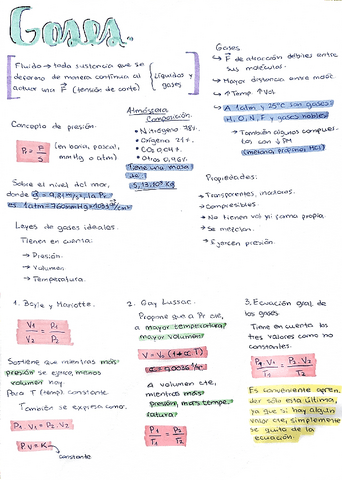 Gases
Fluido → toda sustancia que se
deforma de manera continua al
actuar una F (tensión de corte)
Líquidos y
gases
Gases
→ F de atracción débiles entre
sus moléculas.
→ Mayor distancia entre moléc.
→ ↑Temp ↑Vol
→ A 1atm y 25°C son gases
H, O, N, F y gases nobles
→ También algunos compues-
tos con ↓PM
(metano, propano, HCl)
Concepto de presión.
P = F/S
(en baria, pascal,
mmHg o atm)
Atmósfera
Composición:
• Nitrógeno 78%.
• Oxígeno 21%.
• CO₂ 0,04%.
• Otros 0,96%.
Tiene una masa
de
Sobre el nivel del mar,
donde g = 9,81 m/s², la Pr
es 1atm=760mmHg=
Propiedades:
→ Transparentes, incoloros.
→ Compresibles.
→ No tienen vol ni forma propia
→ Se mezclan.
→ Ejercen presión.
Leyes de gases ideales.
Tienen en cuenta:
→ Presión.
→ Volumen
→ Temperatura.
1. Boyle y Mariotte.
V₁/V₂ = P₂/P₁
Sostiene que mientras más
presión se ejerce, menos
volumen hay.
Para T (temp) constante.
También se expresa como:
P₁.V₁ = P₂.V₂
P.V = K
constante
2. Gay Lussac.
Propone que a Pr cte,
a mayor temperatura
mayor volumen
A volumen cte,
mientras más
presión, más tempe-
ratura.
P₁/T₁ = P₂/T₂
3. Ecuación gral de
los gases
Tiene en cuenta los
tres valores como no
constantes.
P₁.V₁/T₁ = P₂.V₂/T₂
Es conveniente apren-
der sólo esta última,
ya que si hay algún
valor cte, simplemente
se quita de la
ecuación.